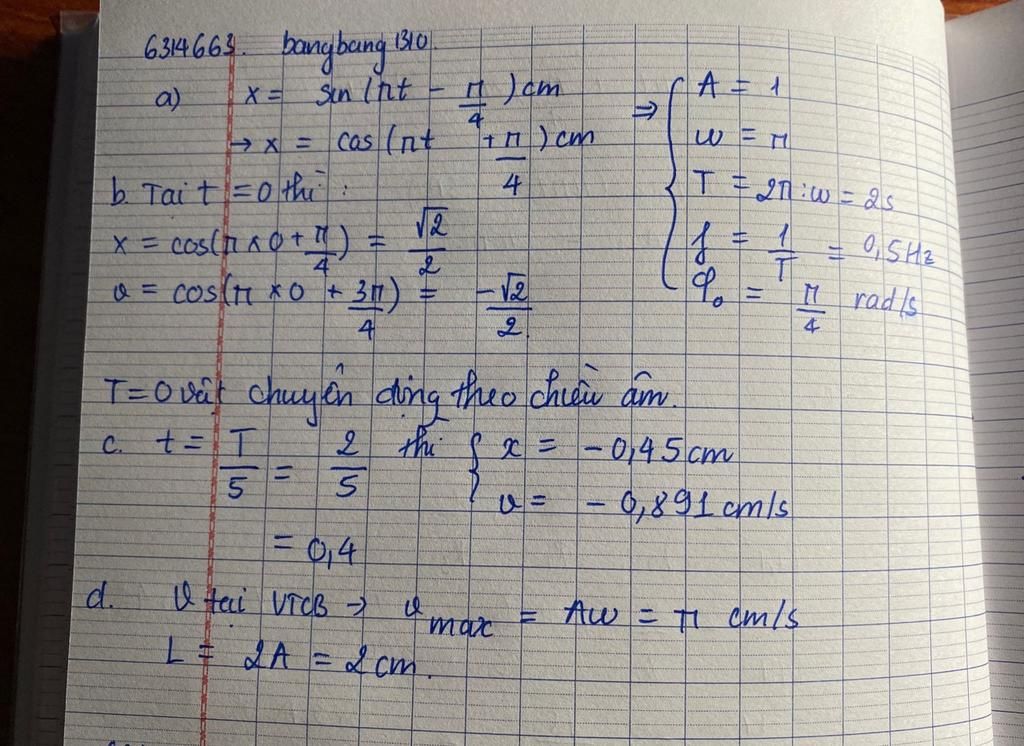 6314663. bangbang1310.
a) x = sin(πt - π/4) cm
→ x = cos(πt + π/4) cm
⇒ { A = 1
ω = π
T = 2π : ω = 2s
f = 1/T = 0,5Hz
φ₀ = π/4 rad/s
b. Tại t = 0 thì :
x = cos(π × 0 + π/4) = √2/2
v = cos(π × 0 + 3π/4) = -√2/2.
T = 0 vật chuyên động theo chiều âm.
c. t = T/5 = 2/5 thì { x = -0,45cm
v = -0,891 cm/s
= 0,4
d. v tại VTCB → v max = Aω = π cm/s
L = 2A = 2cm.